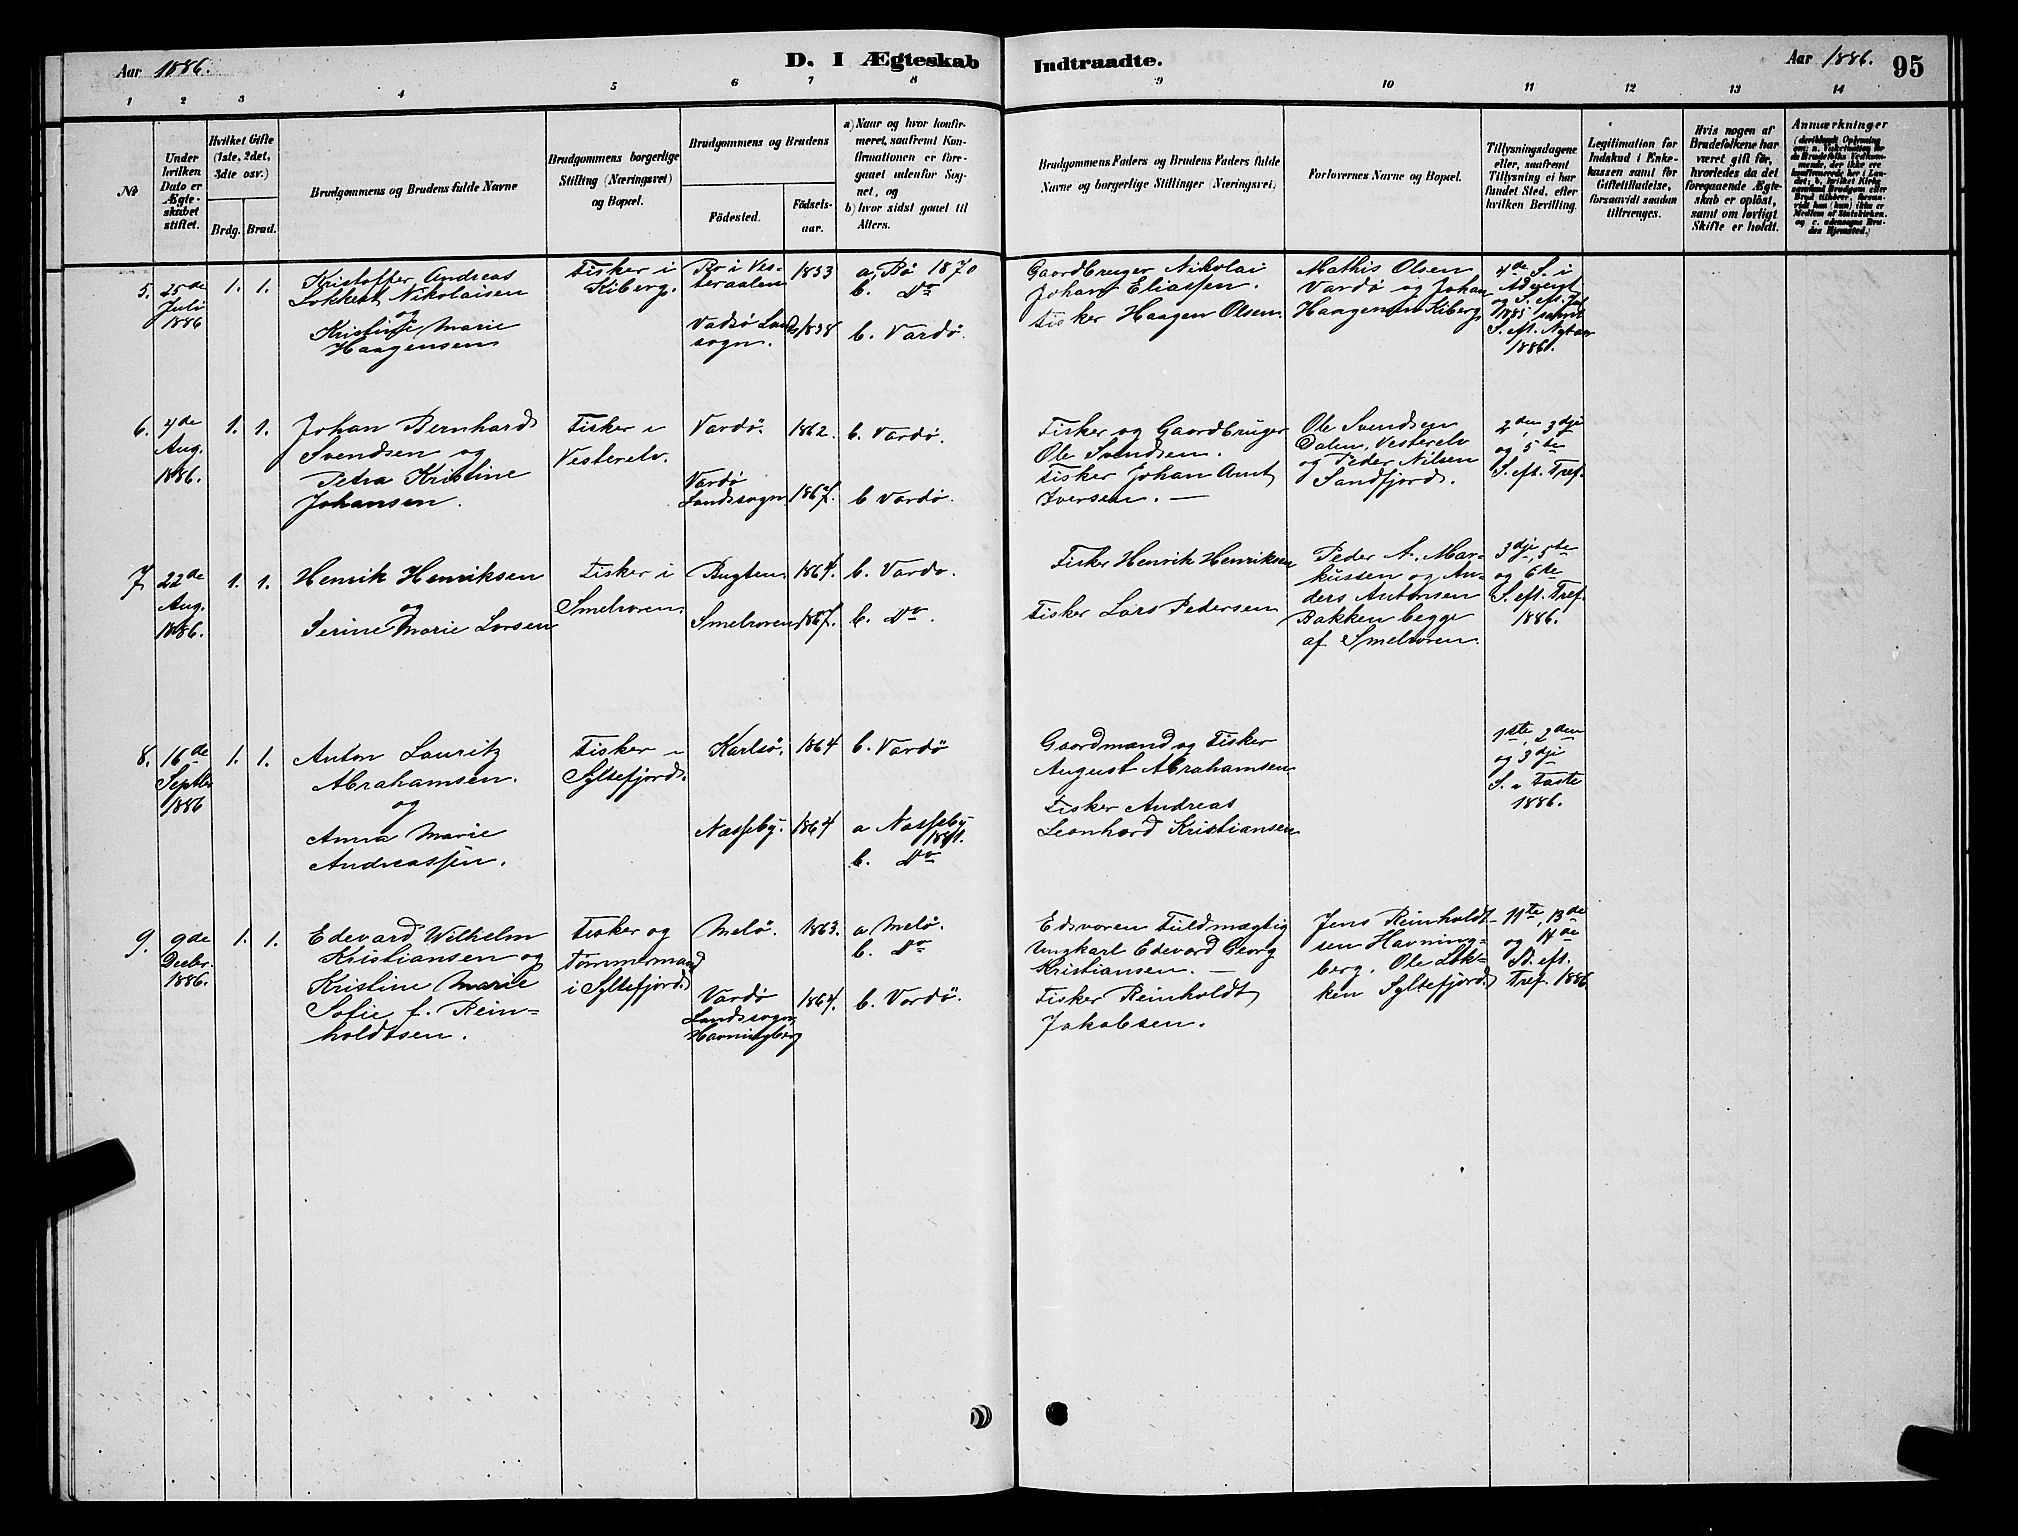 Aar 1886.
D. I Ægteskab Indtraadte.
Aar 1886.
95
1 2 3 4 5 6 7 8 9 10 11 12 13 14
No
Under hvilken Dato er Ægteskabet stiftet.
Hvilket Gifte (1ste, 2det, 3die osv.)
Brdg. Brud.
Brudgommens og Brudens fulde Navne
Brudgommens borgerlige Stilling (Næringsvei) og Bopæl.
Brudgommens og Brudens
Födested.
Födsels-
aar.
a) Naar og hvor konfir-
meret, saafremt Kon-
firmationen er fore-
gaaet udenfor Sog-
net, og
b) hvor sidst gaaet til
Alters.
Brudgommens Faders og Brudens Faders fulde
Navne og borgerlige Stillinger (Næringsvei)
Forlovernes Navne og Bopæl.
Tillysningsdagene
eller, saafremt
Tillysning ei har
fundet Sted, efter
hvilken Bevilling.
Legitimation for
Indskud i Enke-
kassen samt for
Giftetilladelse,
forsaavidt saadan
tiltrænges.
Hvis nogen af
Brudefolkene har
været gift för,
hvorledes da det
foregaaende Ægte-
skab er oplöst,
samt om lovligt
Skifte er holdt.
Anmærkninger
5. 25de Juli 1886
1. 1.
Kristoffer Andreas
Lokkert Nikolaisen
og
Kristine Marie
Haagensen
Fisker i
Kiberg.
Bö i Ves-
teraalen
1853
a. Bö 1870
b. Do
Vadsö Lands
sogn.
b. Vardö.
Gaardbruger Nikolai
Johan Eliassen.
Fisker Haagen Olsen.
Mathis Olsen
Vardö og Johan
Haagensen Kiberg.
4de S. i
Advent
S. eft. Nytaar
1886.
6. 4de Aug. 1886.
1. 1.
Johan Bernhard
Svendsen og
Petra Kristine
Johansen.
Fisker i
Vesterelv.
Vardö. 1862.
b. Vardö.
Vardö
Landssogn 1867.
b Vardö.
Fisker og Gaardbruger
Ole Svendsen.
Fisker Johan Amt
Iversen. —
Ole Svendsen
Dalen, Vesterelv
og Peder Nilsen
Sandfjord.
2den, 3dje
og 5te
S. eft. Tref.
7 22de Aug. 1886.
1. 1.
Henrik Henriksen
og
Serine Marie Larsen
Fisker i
Smelroren.
Bugten. 1864.
b. Vardö.
Smelroren 1867.
b. Do.
Fisker Henrik Henriksen
Fisker Lars Pedersen
Peder A. Mar-
kussen og An-
ders Antonsen
Bakken begge
af Smelroren.
3dje, 5te
og 6te
S. eft. Tref.
1886.
8. 16de Septbr 1886
1. 1.
Anton Lauritz
Abrahamsen.
og
Anna Marie
Andreassen.
Fisker i
Syltefjord.
Karlsö. 1864
b. Vardö
Næsseby. 1864
a Næsseby
b. Do
Gaardmand og Fisker
August Abrahamsen
Fisker Andreas
Leonhard Kristiansen
1ste, 2den
og 3dje
S. i Faste
1886.
9. 9de Decbr. 1886.
1. 1.
Edevard Wilhelm
Kristiansen og
Kristine Marie
Sofie f. Rein=
holdtsen.
Fisker og
Tømmermand
i Syltefjord.
Melö. 1863.
a Melö.
b. Do
Vardö
Landssogn,
Havningberg
1864.
b. Vardö.
Fuldmægtig
Ungkarl Edevard Georg
Kristiansen. —
Fisker Reinholdt
Jakobsen.
Jens Reinholdt-
sen Havning=
berg. Ole Lök-
ken Syltefjord.
11te, 13de
og 14de
S. eft.
Tref. 1886